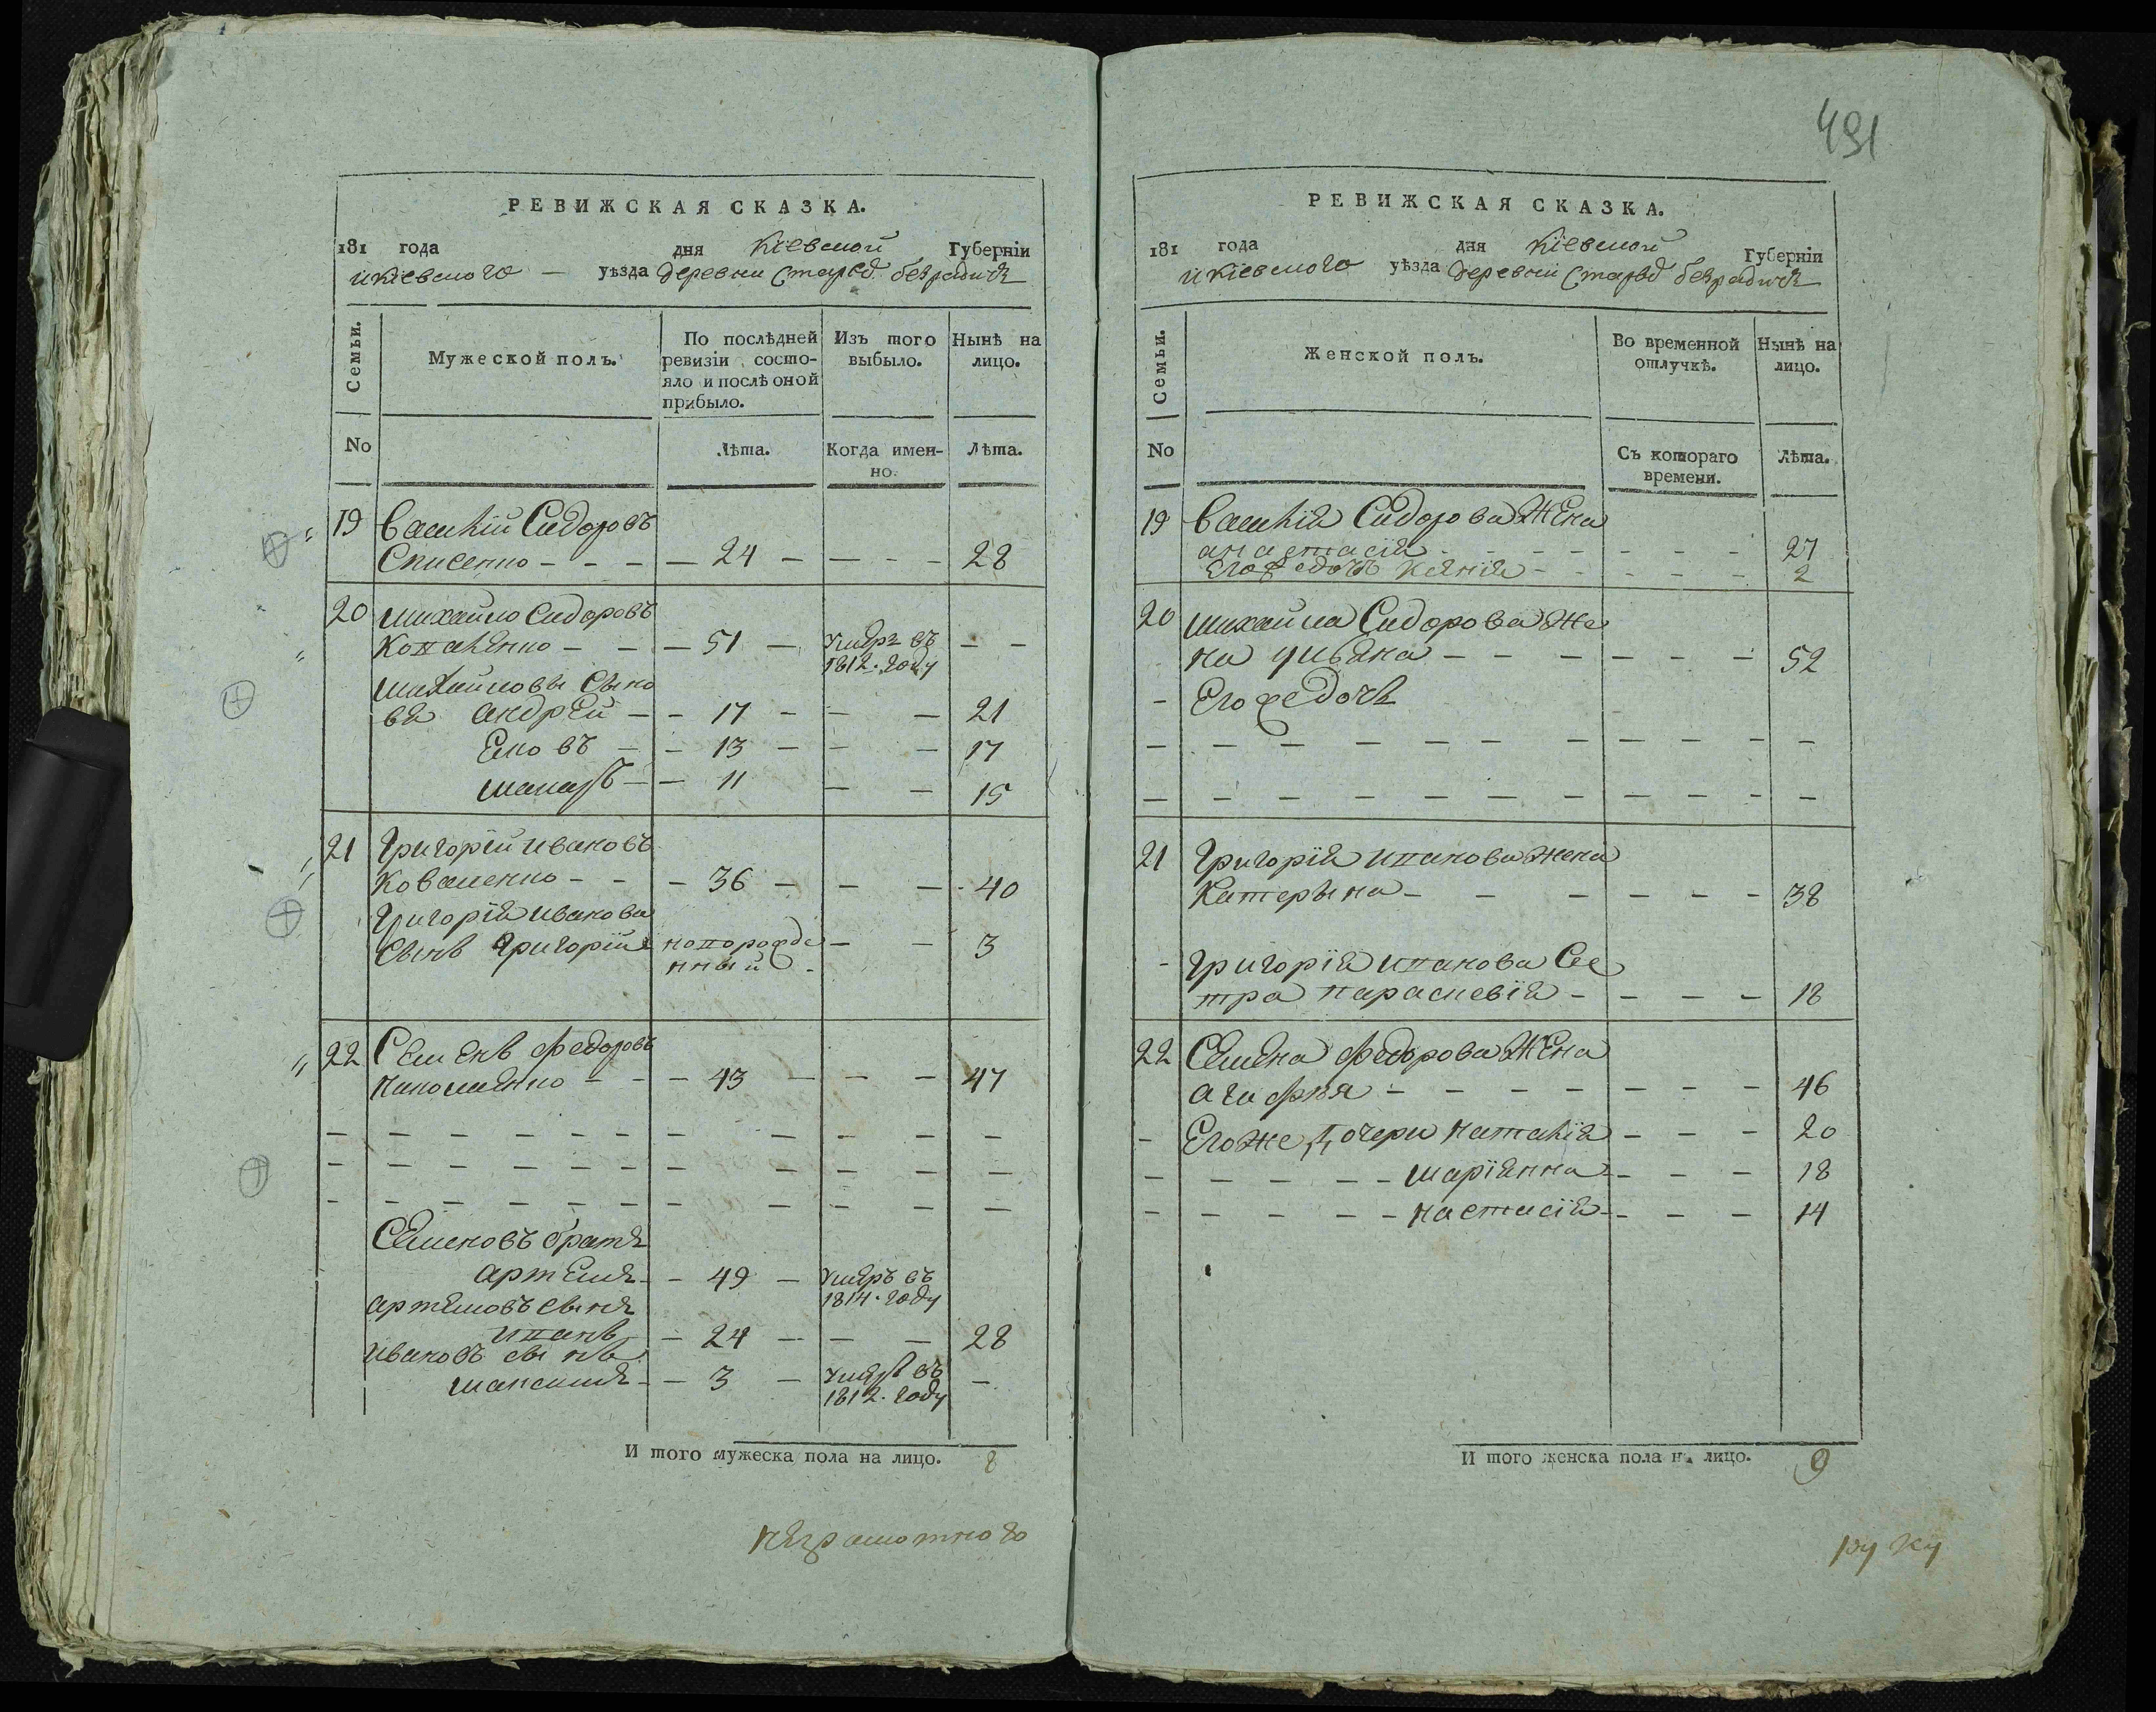 491
РЕВИЖСКАЯ СКАЗКА.
181 года дня Кіевской Губерніи
и кіевского — уѣзда деревни Старыѣ безрадичѣ
Семьи.
Мужеской полъ.
По послѣдней ревизіи состо-
яло и послѣ оной
прибыло.
Изъ того
выбыло.
Нынѣ на
лицо.
No
Лѣта.
Когда имен-
но.
Лѣта.
19 Василій Сидоровъ
24 28
20 михайло Сидоровъ
51 умеръ въ
1812. году
михайловы Сыно
вя андрей 17 21
13 17
макаръ 11 15
21 Григорій ивановъ
Коваленко 36 40
Григорія иванова
Сынъ Григорій новорожде
нный 3
22 Семенъ Федоровъ
43 47
Семеновъ братъ
артемъ 49 умеръ въ
1814. году
артемовъ сынъ
иванъ 24 28
ивановъ сынъ
максимъ 3 умеръ въ
1812. году
И того мужеска пола на лицо. 8
неграмотного
РЕВИЖСКАЯ СКАЗКА.
181 года дня Кіевской Губерніи
и кіевского уѣзда деревни Старыѣ безрадичѣ
Семьи.
Женской полъ.
Во временной
отлучкѣ.
Нынѣ на
лицо.
No
Съ котораго
времени.
Лѣта.
19 Василія Сидорова Жена
анастасія 27
2
20 михайла Сидорова Же
на уляна 52
21 Григорія иванова жена
Катерына 38
Григорія иванова Сес
тра параскевія 18
22 Семена Федорова Жена
агафия 46
Егоже дочери наталія 20
маріянна 18
настасія 14
И того женска пола на лицо. 9
руку